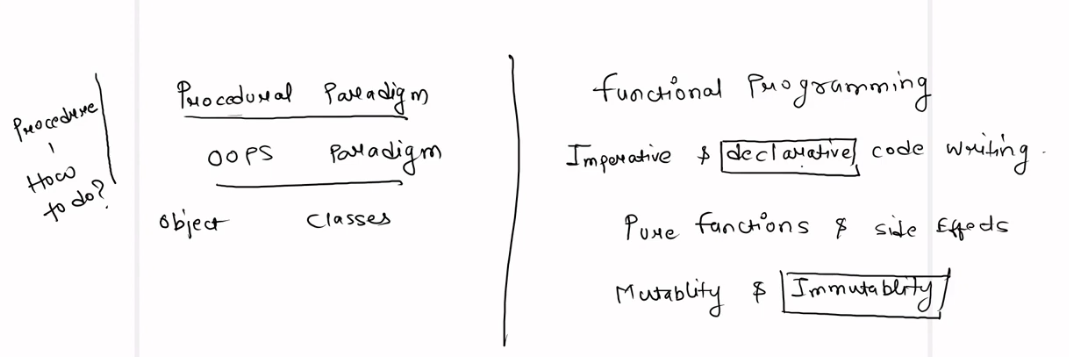 Procedure
How
to do?
Procedural Paradigm
OOPS Paradigm
Object Classes
functional Programming
Imperative & declarative code writing.
Pure functions & side Effects
Mutablity & Immutablity